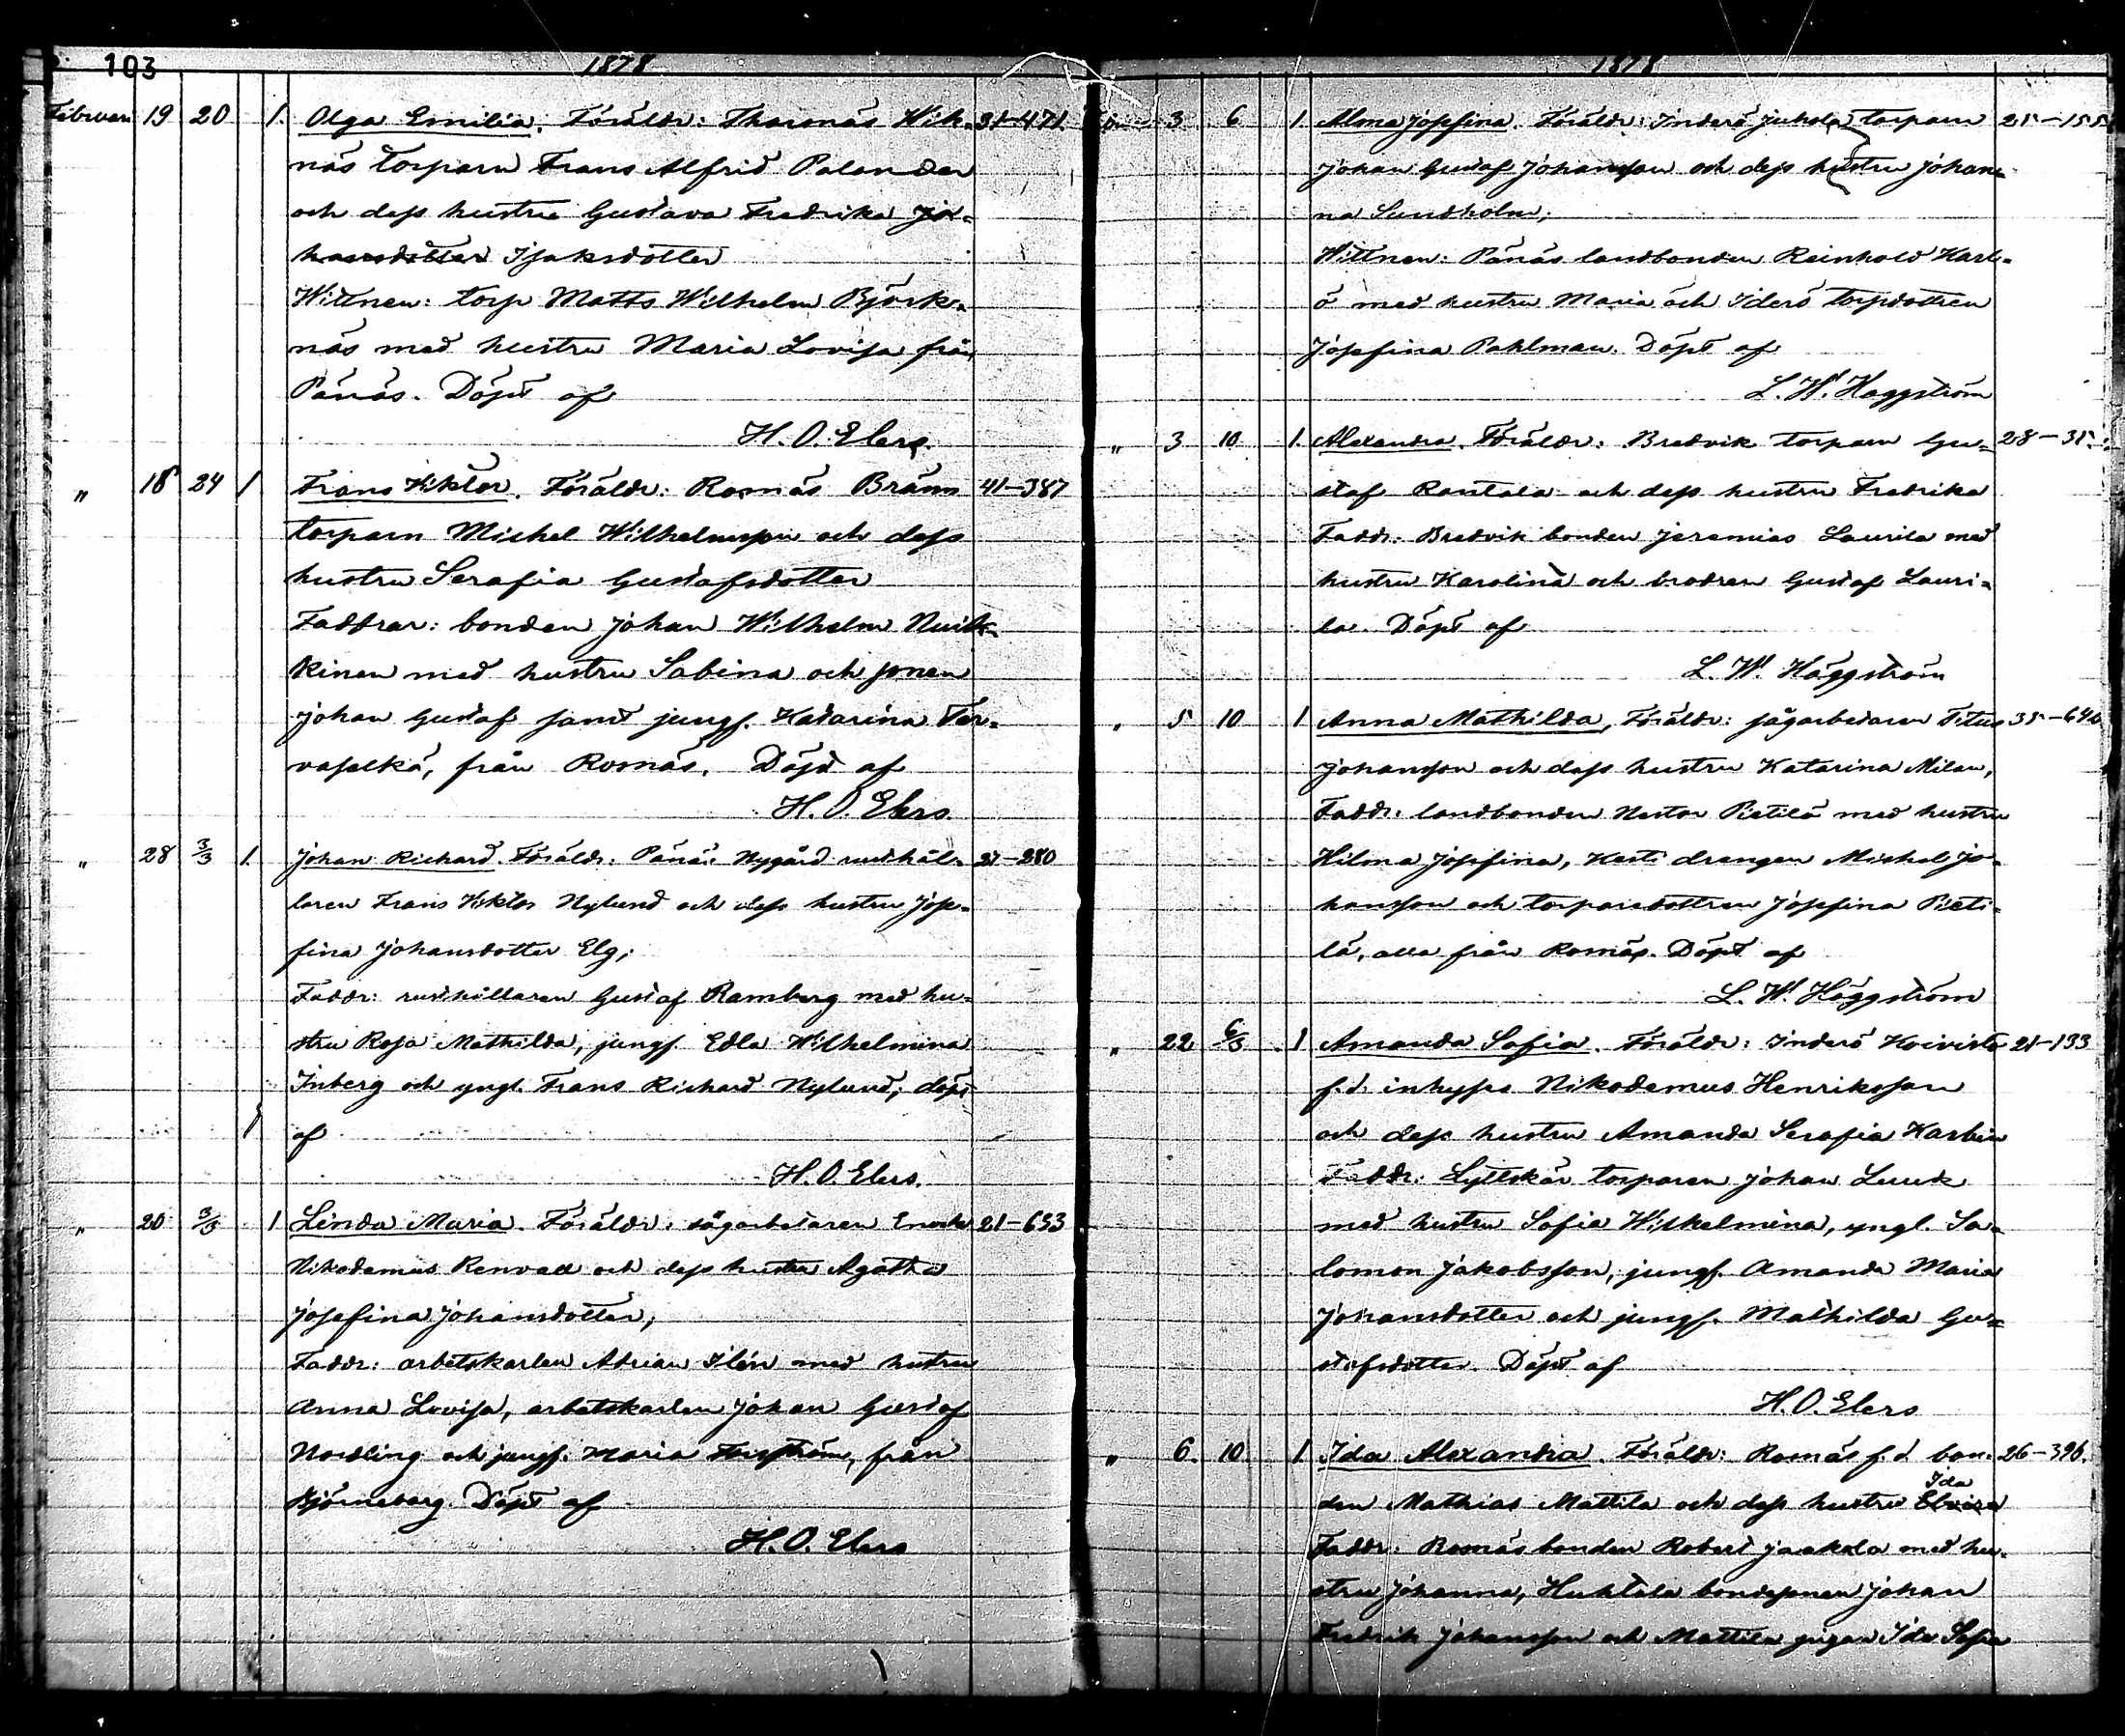 103
1878
Februari 19 20 1. Olga Emilia. Föräldr: Tharonäs Wik- 31-471
näs torparn Frans Alfrid Palander
och dess hustru Gustava Fredrika Jo-
hansdotter Isaksdotter
Wittnen: torp Matts Wilhelm Björk-
näs med hustru Maria Lovisa från
Pänäs. Döpt af
H. O. Elers.
" 18 24 1 Frans Viktor. Föräldr: Rosnäs Bräm 41-387
torparn Michel Wilhelmsson och dess
hustru Serafia Gustafsdotter
Faddrar: bonden Johan Wilhelm Nuik-
kinen med hustru Sabina och sonen
Johan Gustaf samt jungf. Katarina Tar-
vaselkä, från Rosnäs. Döpt af
H. O. Elers
" 28 3/3 1. Johan Richard. Föräldr: Pänäs Nygård rusthål- 21-280
laren Frans Viktor Nylund och dess hustru Jose-
fina Johansdotter Elg;
Faddr: rusthållaren Gustaf Ramberg med hu-
stru Rosa Mathilda, jungf. Edla Wilhelmina
Inberg och yngl. Frans Richard Nylund; döpt
af
H. O. Elers.
" 20 3/3 1 Linda Maria. Föräldr: sågarbetaren Enoch 21-653
Nikodemus Renvall och dess hustru Agatha
Josefina Johansdotter,
Faddr: arbetskarlen Adrian Ilén med hustru
Anna Lovisa, arbetskarlen Johan Gustaf
Nordling och jungf. Maria, från
Björneborg. Döpt af
H. O. Elers
1878
3 6 1 Alma Josefina. Föräldr: Inderö Juhola torparn 21-155
Johan Gustaf Johansson och dess hustru Johan-
na Sundholm;
Wittnen: Pänäs landbonden Reinhold Karl-
ö med hustru Maria och Iderö torpdottren
Josefina Pahlman. Döpt af
L. W. Häggström
" 3 10 1 Alexandra. Föräldr: Bredvik torparn Gu- 28-35
staf Rantala och dess hustru Fredrika
Faddr: Bredvik bonden Jeremias Laurila med
hustru Karolina och brodren Gustaf Lauri-
la. Döpt af
L. W. Häggström
" 5 10 1 Anna Mathilda, Föräldr: sågarbetaren Titus 35-646
Johansson och dess hustru Katarina Milan,
Faddr: landbonden Nestor Pietilä med hustru
Hilma Josefina, Kesti drengen Michel Jo-
hansson och torparedottren Josefina Pieti-
lä, alla från Rosnäs. Döpt af
L. W. Häggström
" 22 6/3 1 Amanda Sofia. Föräldr: Inderö Koivisto 21-133
f.d. inhyses Nikodemus Henriksson
och dess hustru Amanda Serafia Karlsin
Faddr: Lyttskär torparen Johan Lurck
med hustru Sofia Wilhelmina, yngl. Sa-
lomon Jakobsson, jungf. Amanda Maria
Johansdotter och jungf. Mathilda Gu-
stafsdotter. Döpt af
H. O. Elers
" 6. 10 1 Ida Alexandra. Föräldr: Rosnäs f.d. bon- 26-396.
Ida
den Mathias Mattila och dess hustru Elvira
Faddr: Rosnäs bonden Robert Jaakola med hu-
stru Johanna, Huhtala bondesonen Johan
Fredrik Johansson och Mattila pigan Ida Sofia